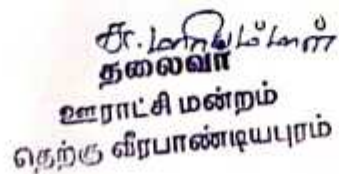 தலைவர்
ஊராட்சி மன்றம்
தெற்கு வீரபாண்டியபுரம்